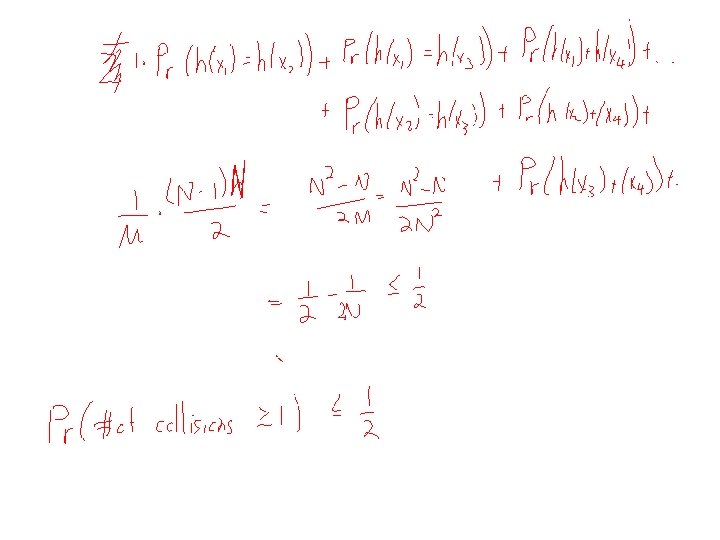 1· Pr(h(x₁)=h(x₂)) + Pr(h(x₁)=h(x₃)) + Pr(h(x₁)+h(x₄)) + ...
+ Pr(h(x₂)=h(x₃)) + Pr(h(x₂)+(x₄)) +
+ Pr(h(x₃)+(x₄)) + .
1/M · (N-1)N/2 = N²-N/2M = N²-N/2N²
= 1/2 - 1/2N ≤ 1/2
Pr(# of collisions ≥ 1) ≤ 1/2